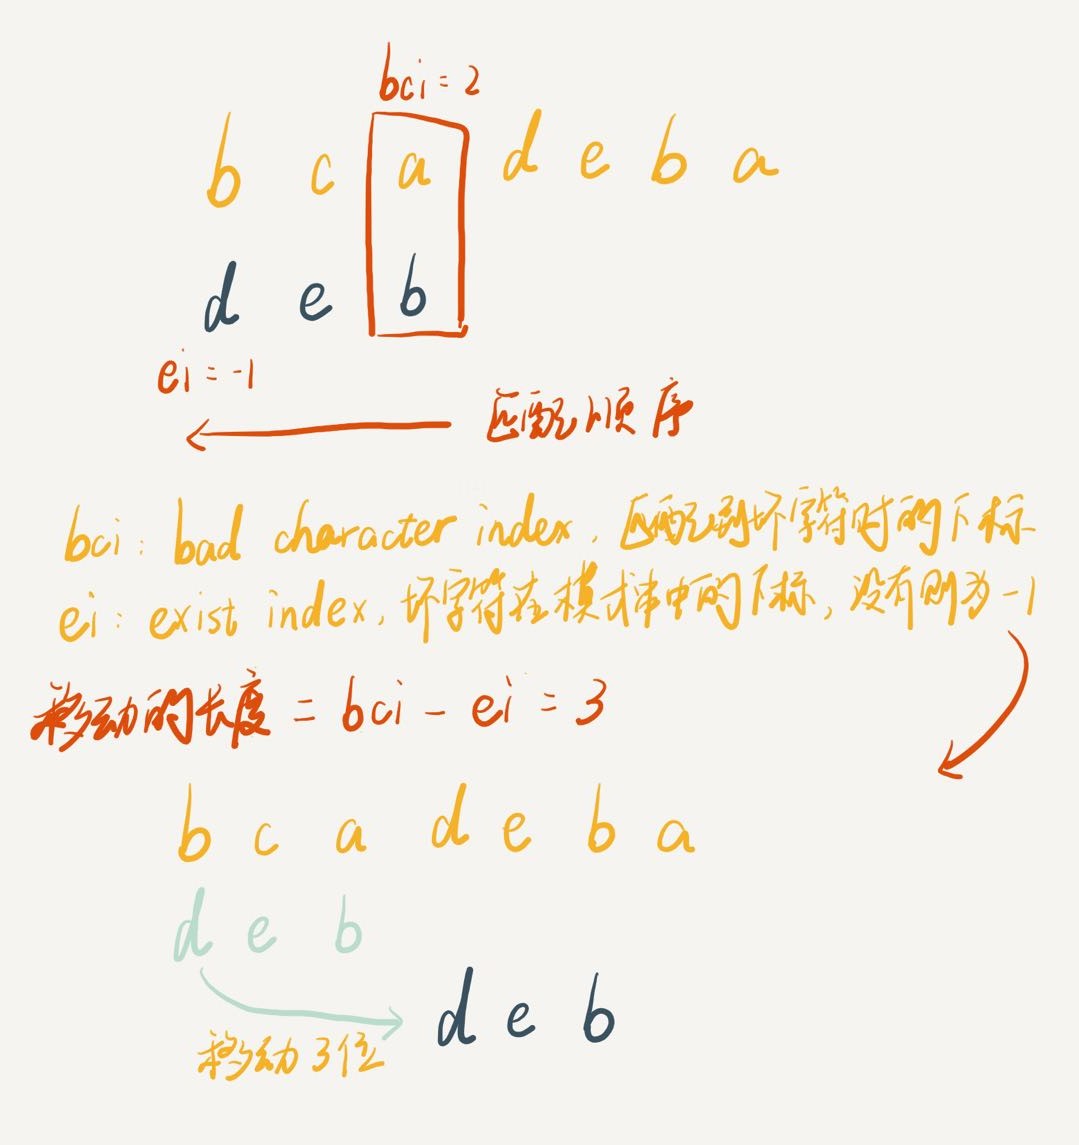 bci = 2
b c a d e b a
d e b
ei = -1
匹配顺序
bci: bad character index, 匹配到坏字符时的下标
ei: exist index, 坏字符在模式串中的下标, 没有则为-1
移动的长度 = bci - ei = 3
b c a d e b a
d e b
d e b
移动3位